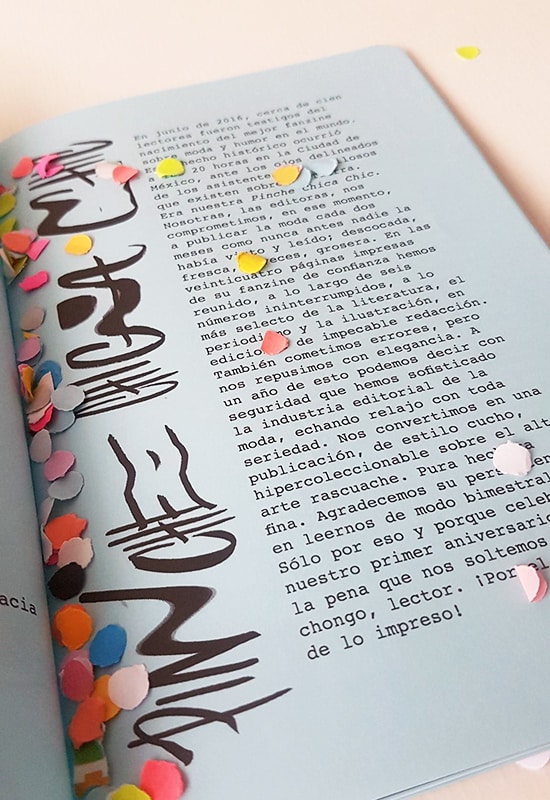 PINCHE CHICA CHIC
En junio de 2016, cerca de cien
lectores fueron testigos del
nacimiento del mejor fanzine
sobre moda y humor en el mundo.
hecho histórico ocurrió
20 horas en la Ciudad de
México, ante los ojos delineados
de los asistentes
que existen
Era nuestra Pinche Chica Chic.
Nosotras, las editoras, nos
comprometimos, en ese momento,
a publicar la moda cada dos
meses como nunca antes nadie la
había y leído; descocada,
fresca, grosera. En las
veinticuatro páginas impresas
de su fanzine de confianza hemos
reunido, a lo largo de seis
números ininterrumpidos, a lo
más selecto de la literatura, el
periodismo y la ilustración, en
de impecable redacción.
También cometimos errores, pero
nos repusimos con elegancia. A
un año de esto podemos decir con
seguridad que hemos sofisticado
la industria editorial de la
moda, echando relajo con toda
seriedad. Nos convertimos en una
publicación, de estilo cucho,
hipercoleccionable sobre el
arte rascuache. Pura
fina. Agradecemos su
en leernos de modo bimestral
Sólo por eso y porque
nuestro primer aniversario
la pena que nos soltemos
chongo, lector. ¡Por
de lo impreso!
acia